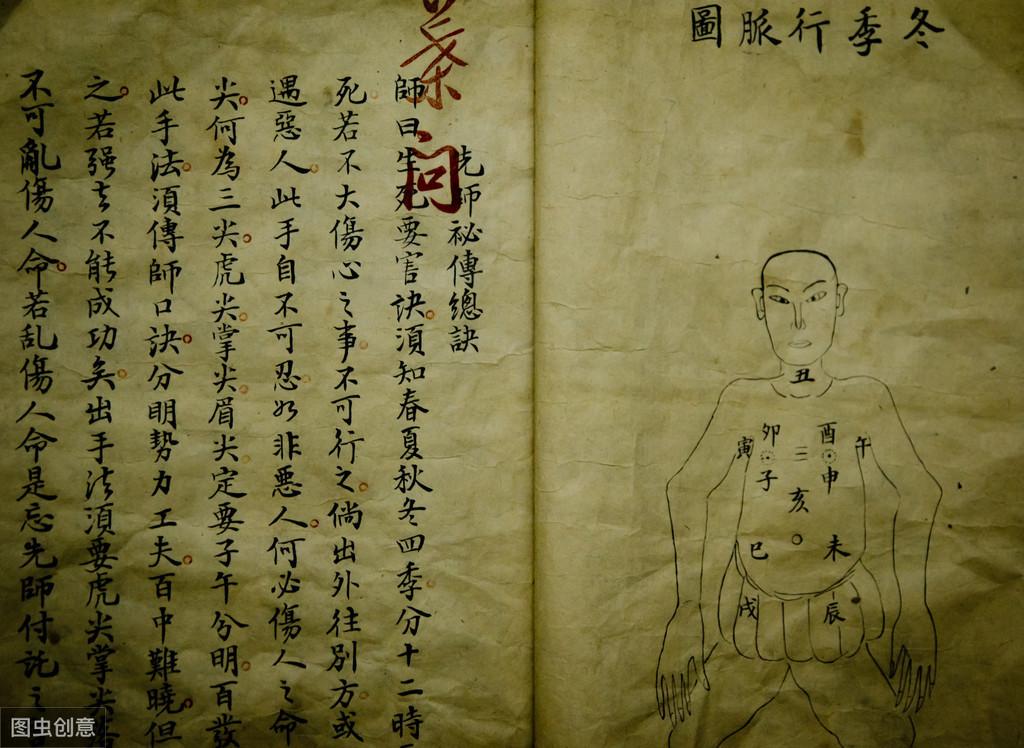 冬季行脈圖
丑
卯
酉
寅
三
午
子
申
亥
巳
未
戌
辰
菜
問
先師祕傳總訣
師曰生死要害訣須知春夏秋冬四季分十二時
死若不大傷心之事不可行之倘出外往別方或
遇惡人此手自不可忍如非悪人何必傷人之命
尖何為三尖虎尖掌尖眉尖定要子午分明百發
此手法須傳師口訣分明勢力工夫百中難曉但
之若强去不能成功矣出手法須要虎尖掌尖眉
不可亂傷人命若乱傷人命是忘先師付託之
图虫创意